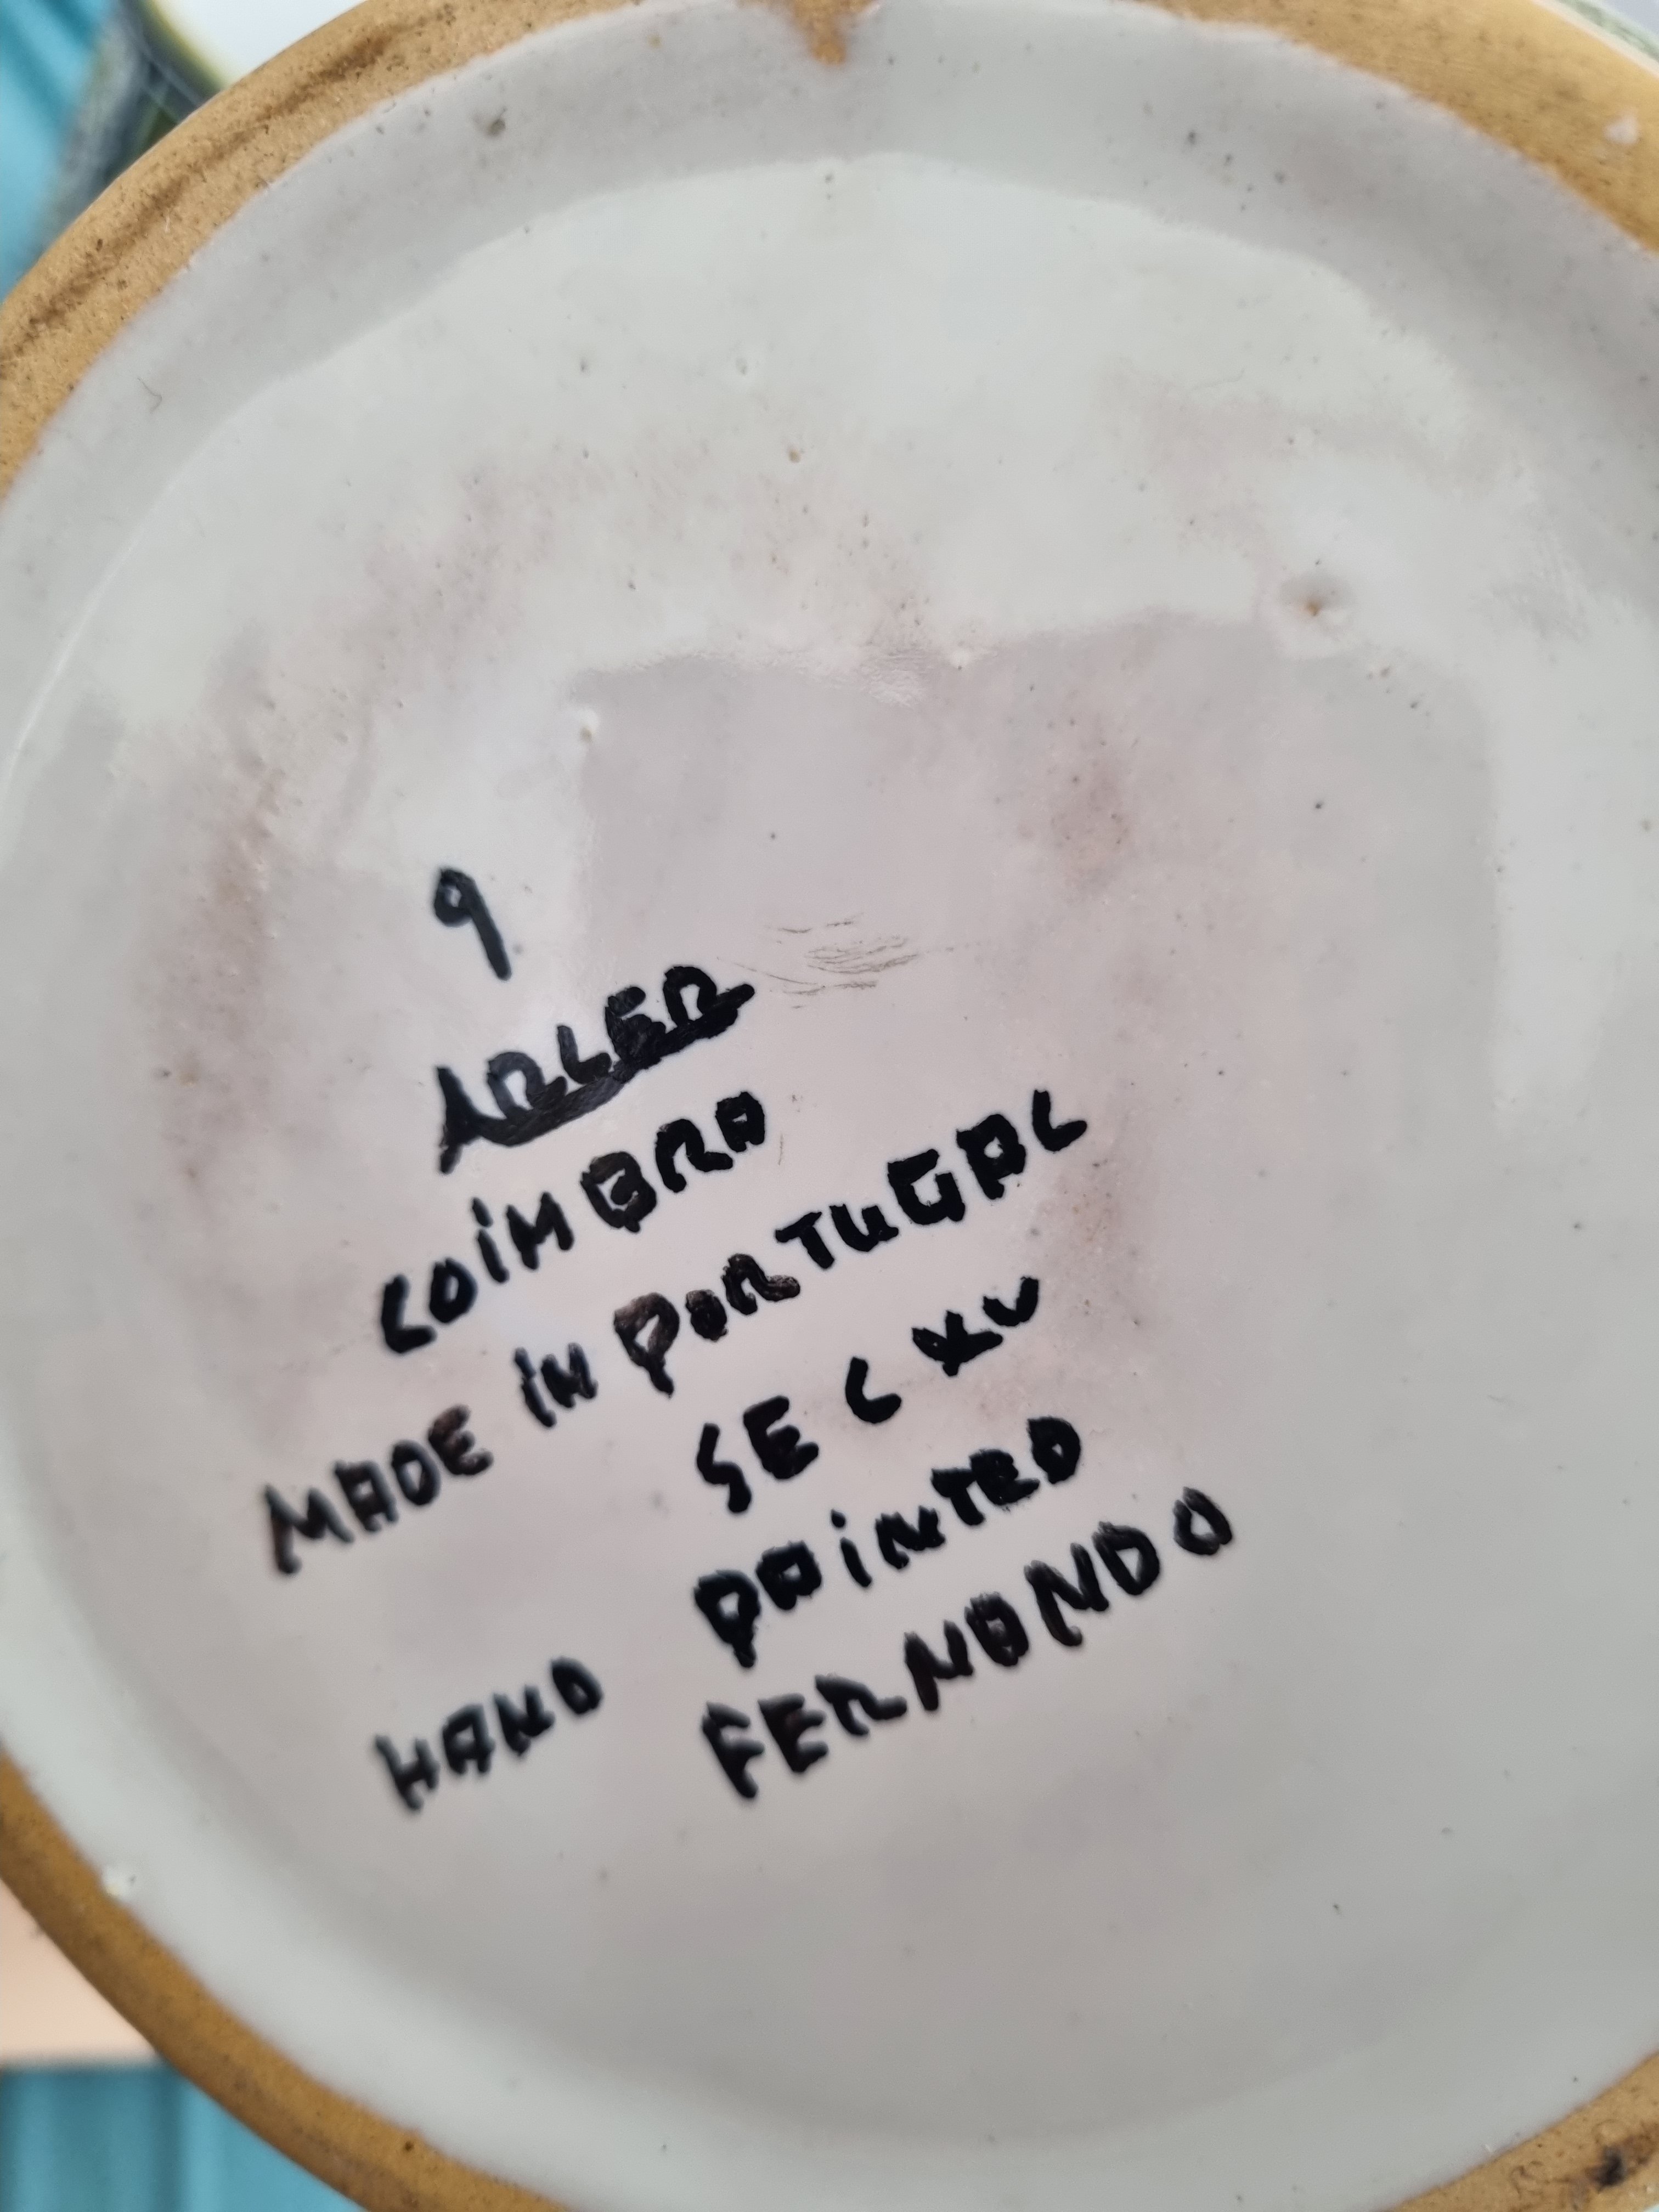 9
ARLER
COiMBRA
MADE IN PORTUGAL
SEC XV
HAND PAiNTED
FERNANDO